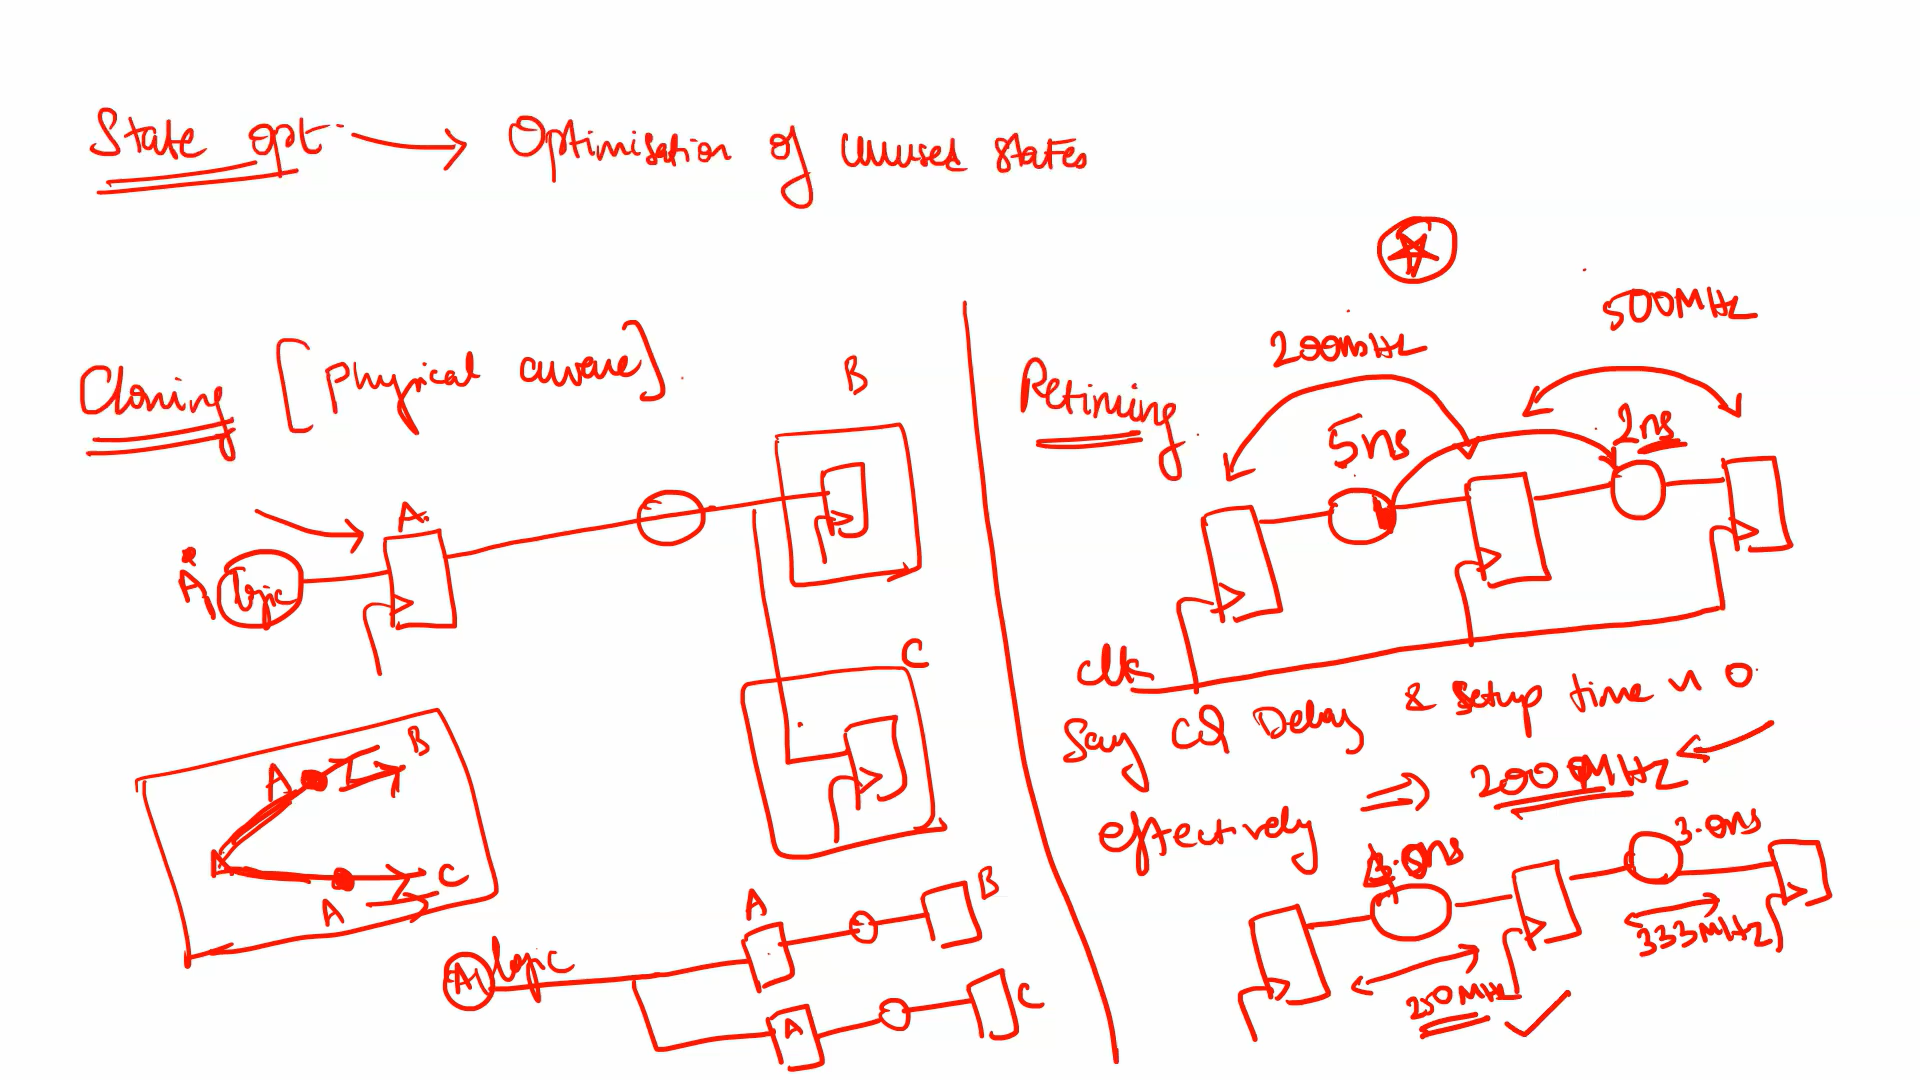 State opt → Optimisation of unused states
Cloning [Physical aware]
B
A
A
logic
C
A
B
A
C
A
A
logic
A
B
A
C
Retiming
200MHz
500MHz
5ns
2ns
clk
Say CQ Delay & setup time is 0
effectively ⇒ 200MHz
4.0ns
3.0ns
250MHz
333MHz